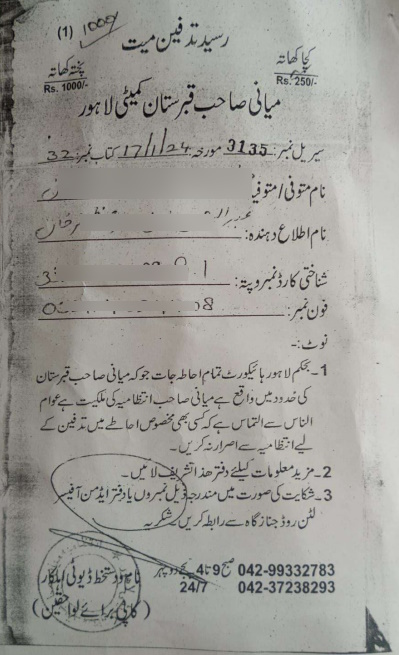 (1) 1000/
رسید تدفین میت
پختہ کھاتہ
Rs. 1000/-
کچا کھاتہ
Rs. 250/-
میانی صاحب قبرستان کمیٹی لاہور
سیریل نمبر: 3135 مورخہ 17/1/24 کتاب نمبر: 32
نام متوفی/متوفیہ
نام اطلاع دہندہ:
شناختی کارڈ نمبر و پتہ: 3
فون نمبر: 08
نوٹ:-
1- بحکم لاہور ہائیکورٹ تمام احاطہ جات جو کہ میانی صاحب قبرستان
کی حدود میں واقع ہے میانی صاحب انتظامیہ کی ملکیت ہے عوام
الناس سے التماس ہے کہ کسی بھی مخصوص احاطے میں تدفین کے
لیے انتظامیہ سے اصرار نہ کریں۔
2- مزید معلومات کیلئے دفتر ھذا تشریف لائیں۔
3- شکایت کی صورت میں مندرجہ ذیل نمبروں یا دفتر ایڈمن آفیسر
لٹن روڈ جنازگاہ سے رابطہ کریں۔ شکریہ
042-99332783 صبح 9 تا 4 بجے دوپہر
042-37238293 24/7
نام و دستخط ڈیوٹی اہلکار
(کاپی برائے لواحقین)